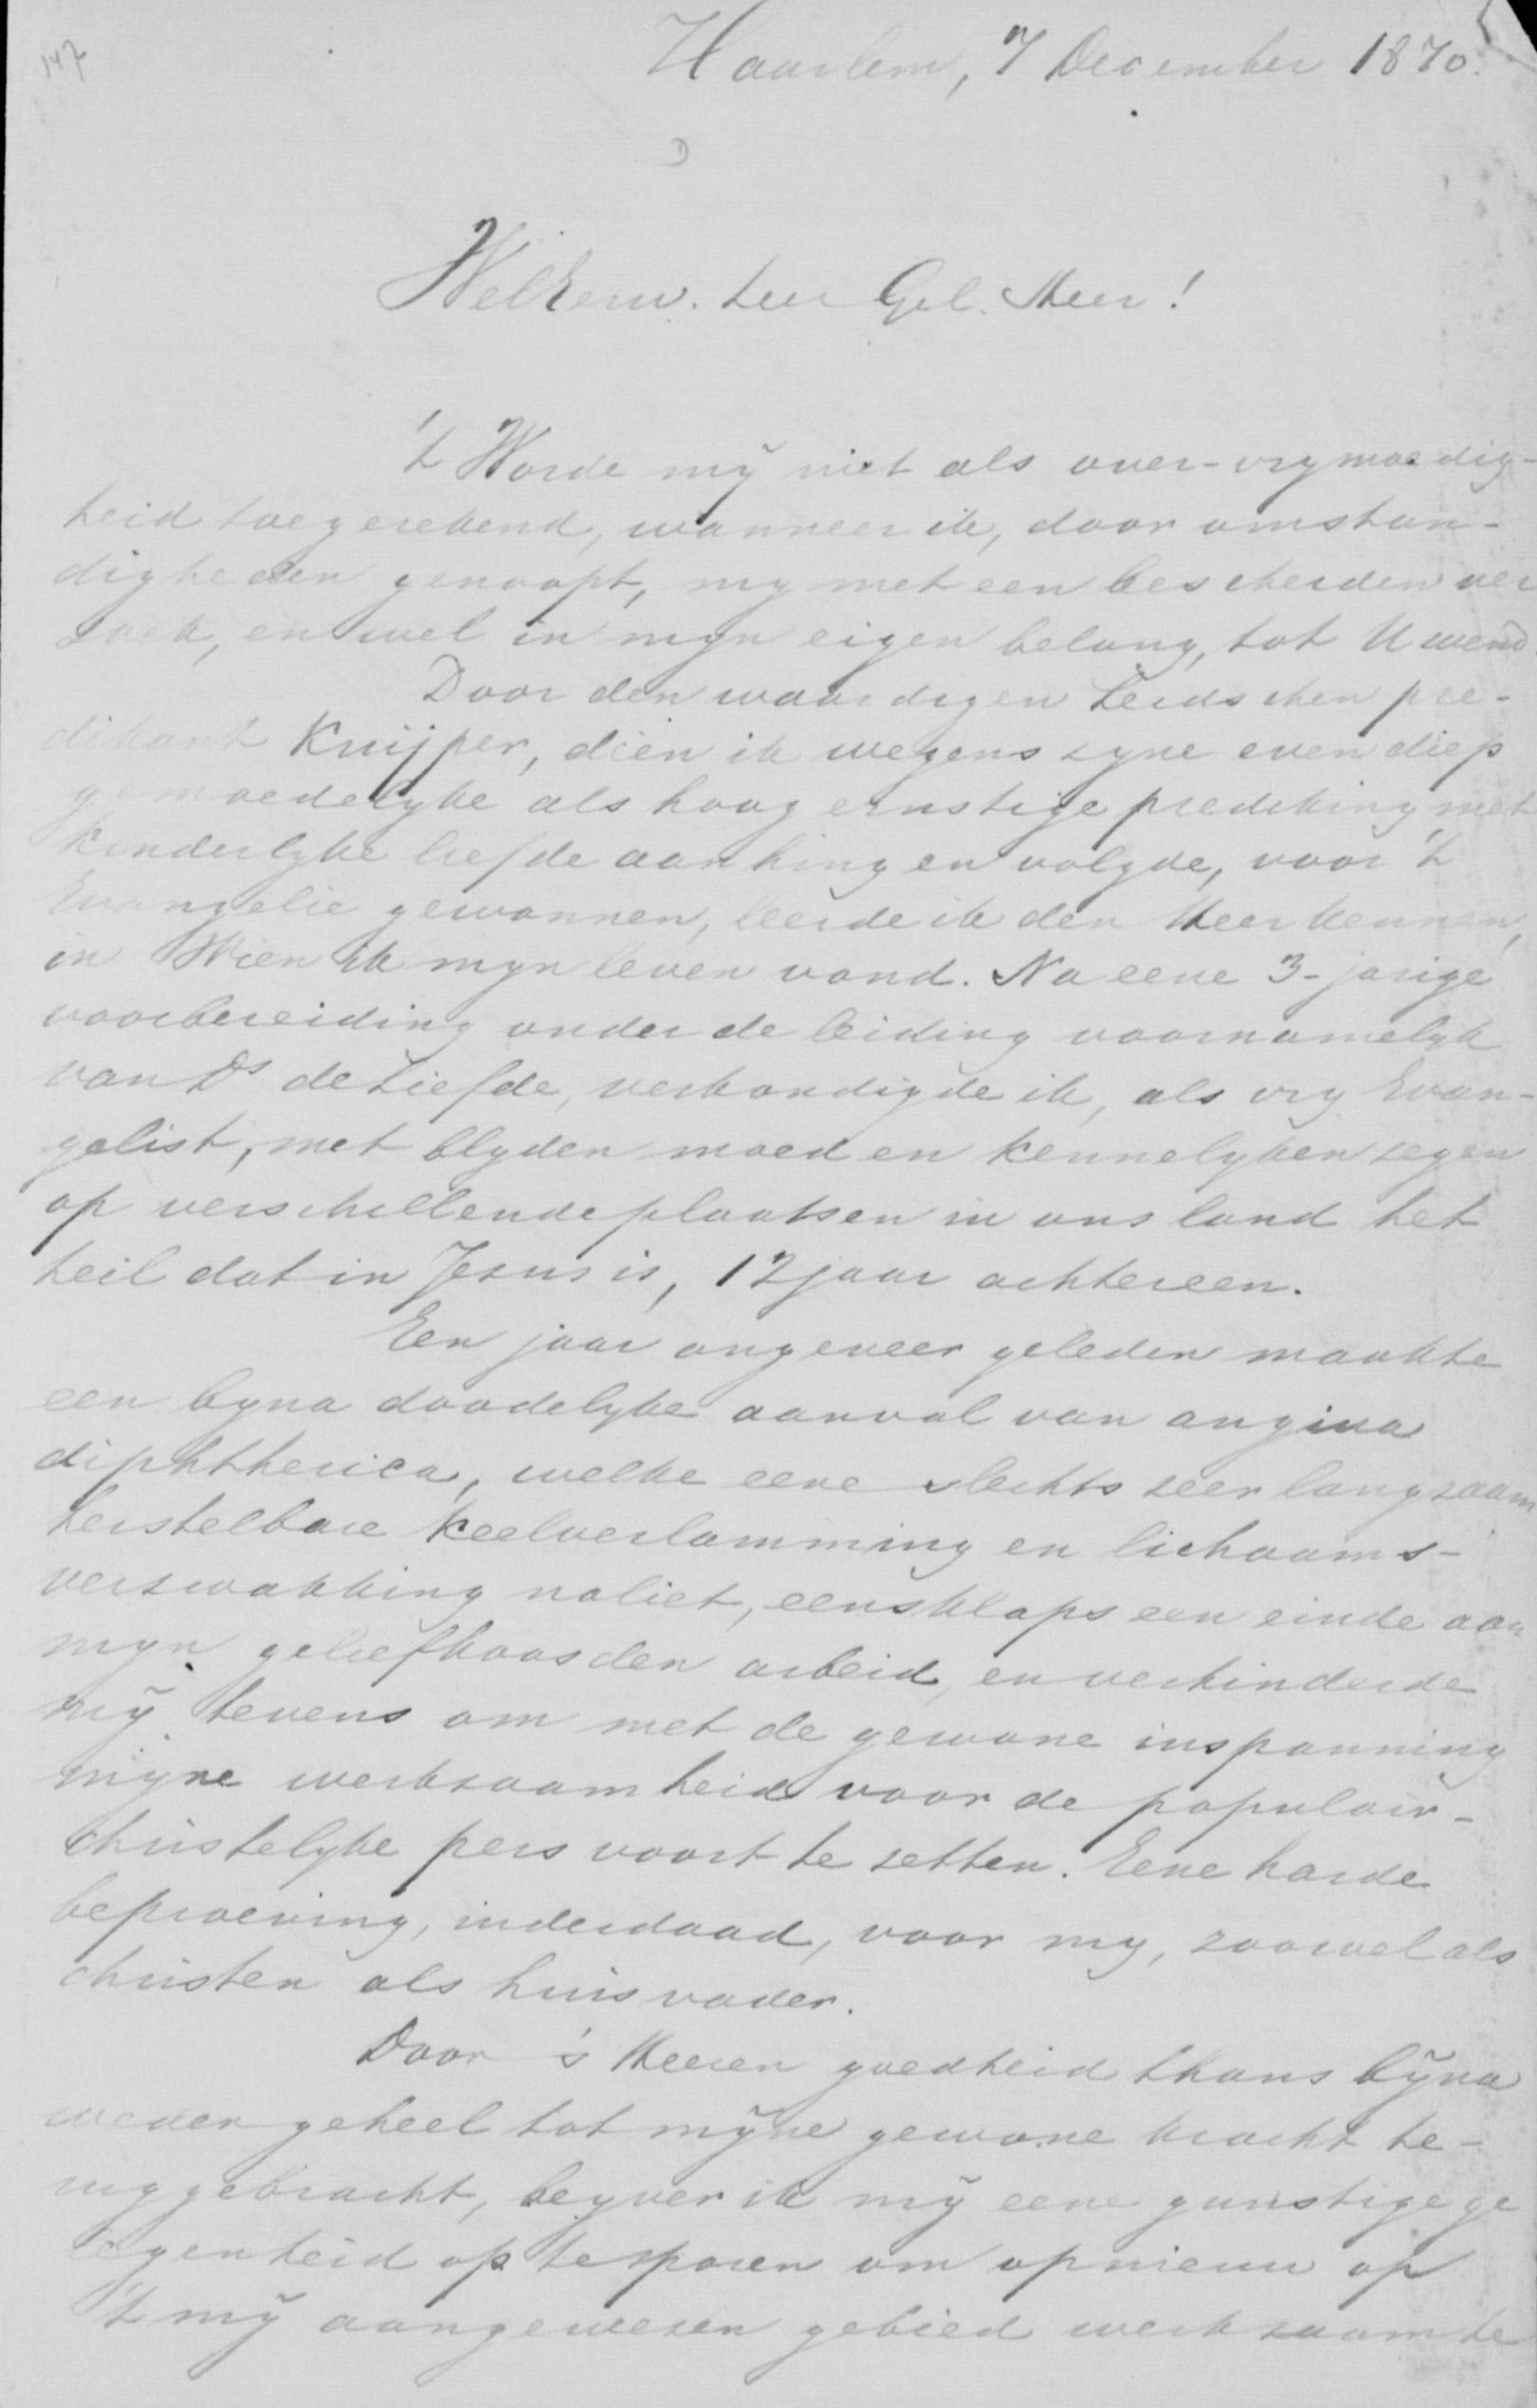 147
Haarlem, 7 December 1870.
D
WelEerw. Zeer Gel. Heer!
't Worde mij niet als over-vrymoedig-
heid toegerekend, wanneer ik, door omstan-
digheden genoopt, my met een bescheiden ver
zoek, en wel in myn eigen belang, tot U wend.
Door den waardigen Leidschen pre-
dikant Kuijper, dien ik wegens zyne even diep
gemoedelyke als hoog ernstige prediking met
kinderlyke liefde aanhing en volgde, voor 't
Evangelie gewonnen, leerde ik den Heer kennen,
in Wien ik myn leven vond. Na eene 3-jarige
voorbereiding onder de leiding voornamelyk
van Ds de Liefde, verkondigde ik, als vry Evan-
gelist, met blyden moed en kennelyken zegen
op verschillende plaatsen in ons land het
heil dat in Jezus is, 12 jaar achtereen.
Een jaar ongeveer geleden maakte
een byna doodelyke aanval van angina
diphtherica, welke eene slechts zeer langzaam
herstelbare keelverlamming en lichaams-
verzwakking naliet, eensklaps een einde aan
myn geliefkoosden arbeid, en verhinderde
mij tevens om met de gewone inspanning
mijne werkzaamheid voor de populair-
christelyke pers voort te zetten. Eene harde
beproeving, inderdaad, voor my, zoowel als
christen als huisvader.
Door 's Heeren goedheid thans bijna
weder geheel tot mijne gewone kracht te-
ruggebracht, beyver ik mij eene gunstige ge
legenheid op te sporen om opnieuw op
't mij aangewezen gebied werkzaam te